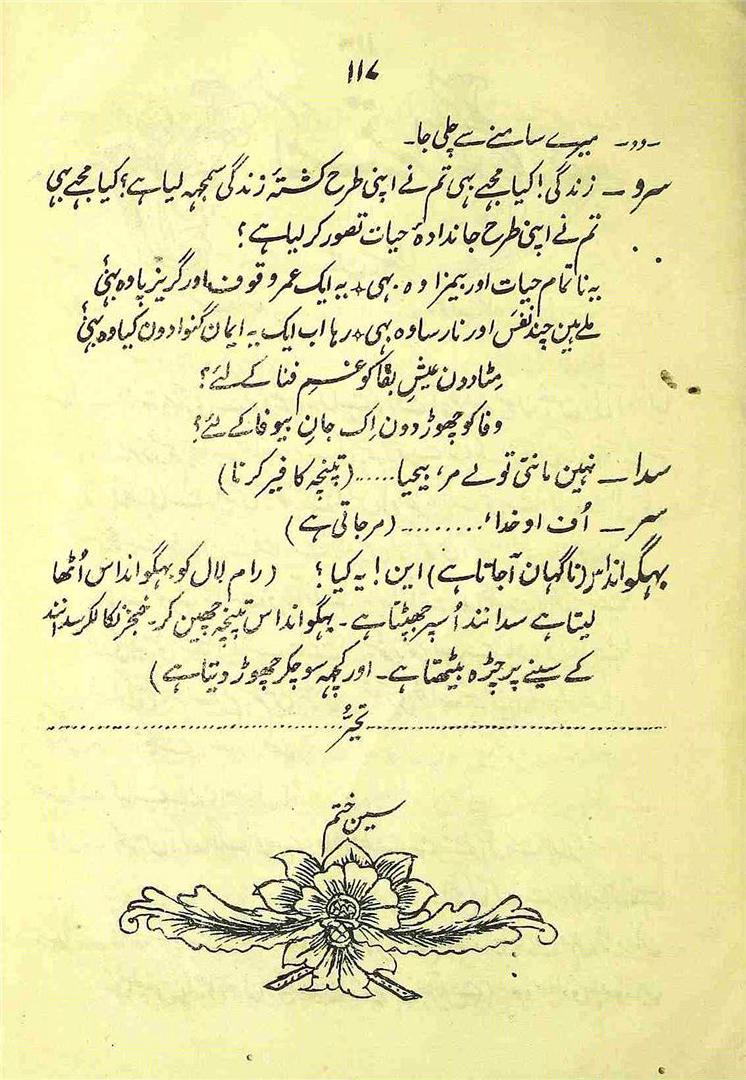 ۱۱۷
۔دو۔ میرے سامنے سے چلی جا۔
سرو۔ زندگی! کیا مجہے بہی تم نے اپنی طرح کشتۂ زندگی سمجہہ لیا ہے؟ کیا مجہے بہی
تم نے اپنی طرح جاندادۂ حیات تصور کر لیا ہے؟
یہ نا تمام حیات اور بیمزا وہ بہی + یہ ایک عمر وقوف اور گریز پا وہ بہئی
ملے ہین چند نفَس اور نارسا وہ بہی + رہا اب ایک یہ ایمان گنوا دون کیا وہ بہئی
مِٹا دون عیشِ بقا کو غمِ فنا کے لئے؟
وفا کو چھوڑ دون اِک جانِ بیوفا کے لئے؟
سدا۔ نہین مانتی تو لے مر، بیحیا..... (تپنچہ کا فیر کرنا)
سر۔ اُف او خدا......... (مر جاتی ہے)
بہگوانداس (ناگہان آ جاتا ہے) این! یہ کیا؟ (رام لال کو بہگوانداس اُٹھا
لیتا ہے سدانند اُسپر جھپٹتا ہے۔ بہگوانداس تپنچہ چھین کر۔ خنجر نکالکر سدانند
کے سینے پر چڑہ بیٹھتا ہے۔ اور کچہہ سوچکر چھوڑ دیتا ہے)
تحیّر
سین ختم